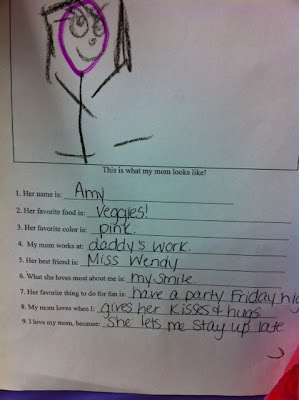 This is what my mom looks like!
1. Her name is: Amy
2. Her favorite food is: Veggies!
3. Her favorite color is: pink.
4. My mom works at: daddy's work.
5. Her best friend is: Miss Wendy
6. What she loves most about me is: my smile
7. Her favorite thing to do for fun is: have a party Friday nig
8. My mom loves when I: gives her kisses & hugs.
9. I love my mom, because: She lets me stay up late